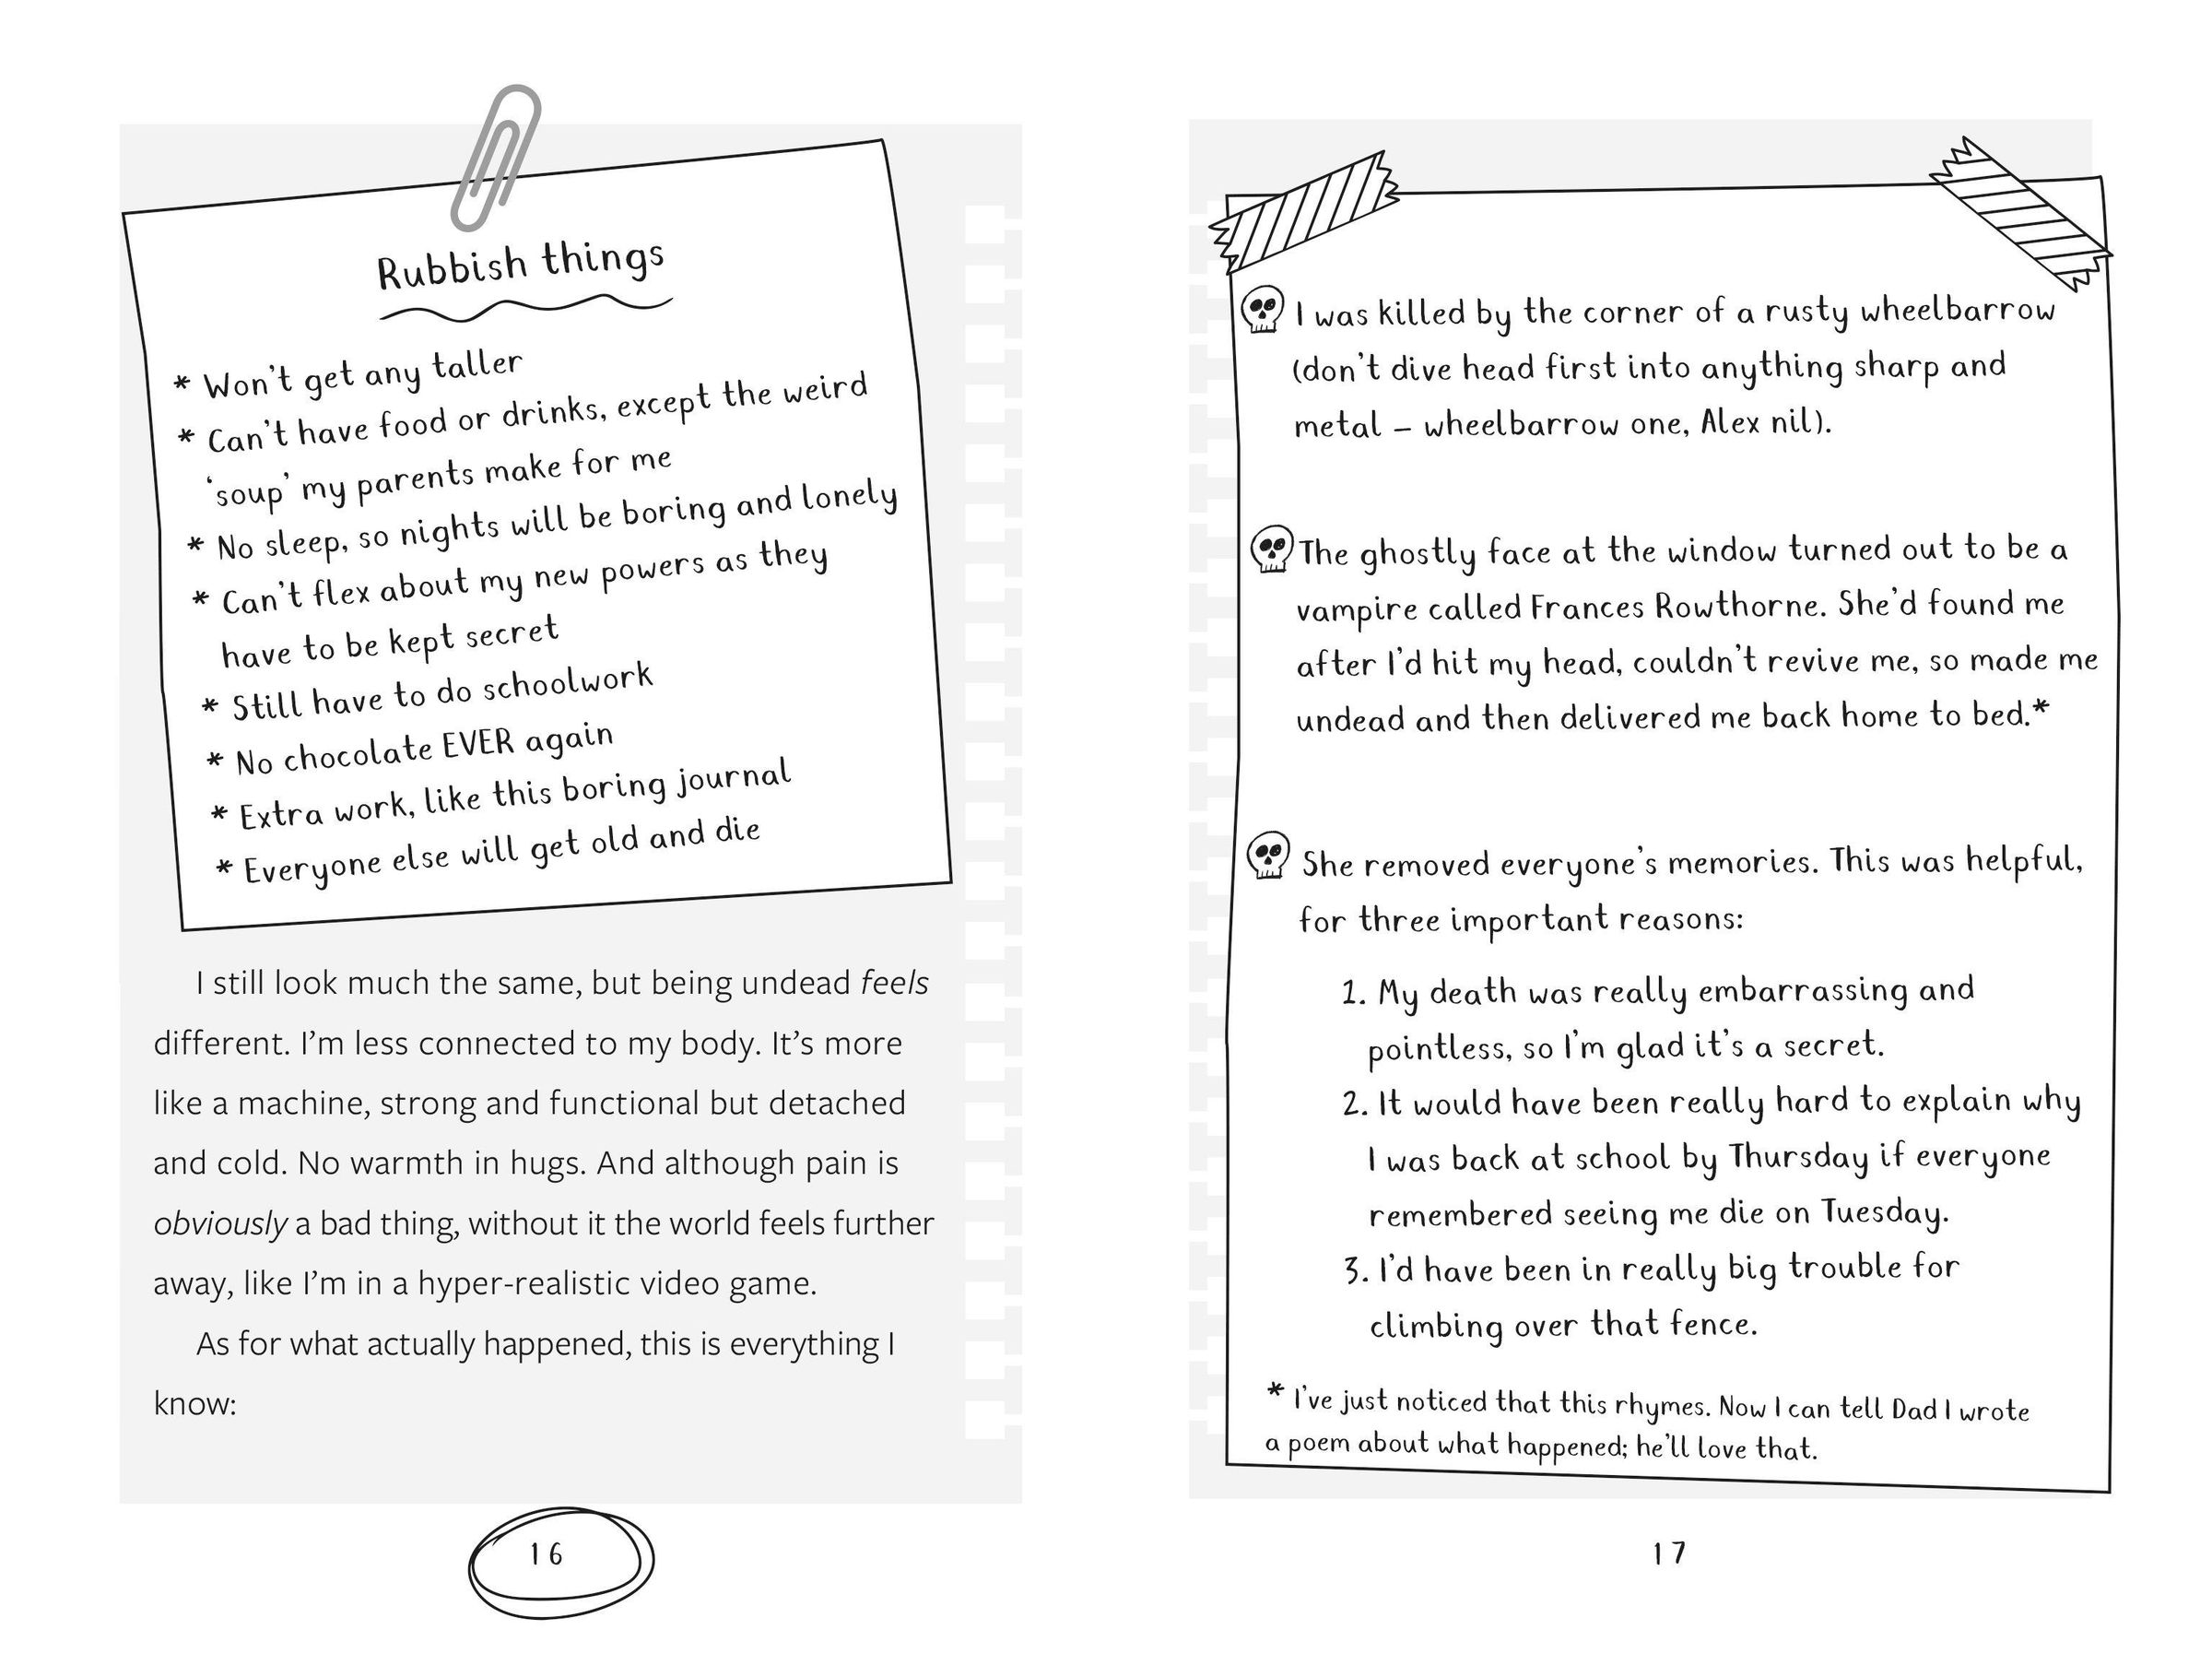 Rubbish things
* Won't get any taller
* Can't have food or drinks, except the weird
‘soup’ my parents make for me
* No sleep, so nights will be boring and lonely
* Can't flex about my new powers as they
have to be kept secret
* Still have to do schoolwork
* No chocolate EVER again
* Extra work, like this boring journal
* Everyone else will get old and die
I still look much the same, but being undead feels
different. I’m less connected to my body. It’s more
like a machine, strong and functional but detached
and cold. No warmth in hugs. And although pain is
obviously a bad thing, without it the world feels further
away, like I’m in a hyper-realistic video game.
As for what actually happened, this is everything I
know:
16
I was killed by the corner of a rusty wheelbarrow
(don’t dive head first into anything sharp and
metal – wheelbarrow one, Alex nil).
The ghostly face at the window turned out to be a
vampire called Frances Rowthorne. She’d found me
after I’d hit my head, couldn’t revive me, so made me
undead and then delivered me back home to bed.*
She removed everyone’s memories. This was helpful,
for three important reasons:
1. My death was really embarrassing and
pointless, so I’m glad it’s a secret.
2. It would have been really hard to explain why
I was back at school by Thursday if everyone
remembered seeing me die on Tuesday.
3. I’d have been in really big trouble for
climbing over that fence.
* I’ve just noticed that this rhymes. Now I can tell Dad I wrote
a poem about what happened; he’ll love that.
17